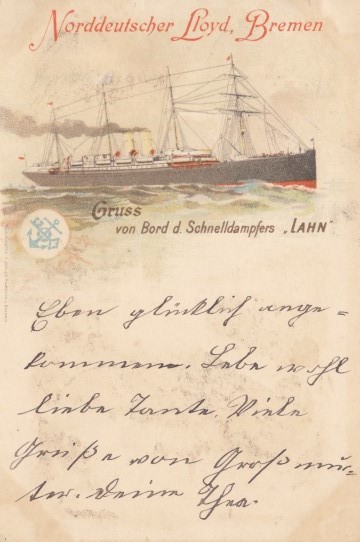 Norddeutscher Lloyd, Bremen
Gruss
von Bord d. Schnelldampfers „LAHN"
Eben glücklich ange-
kommen. Lebe wohl
liebe Tante. Viele
Grüße von Großmut-
ter. Deine Thea.